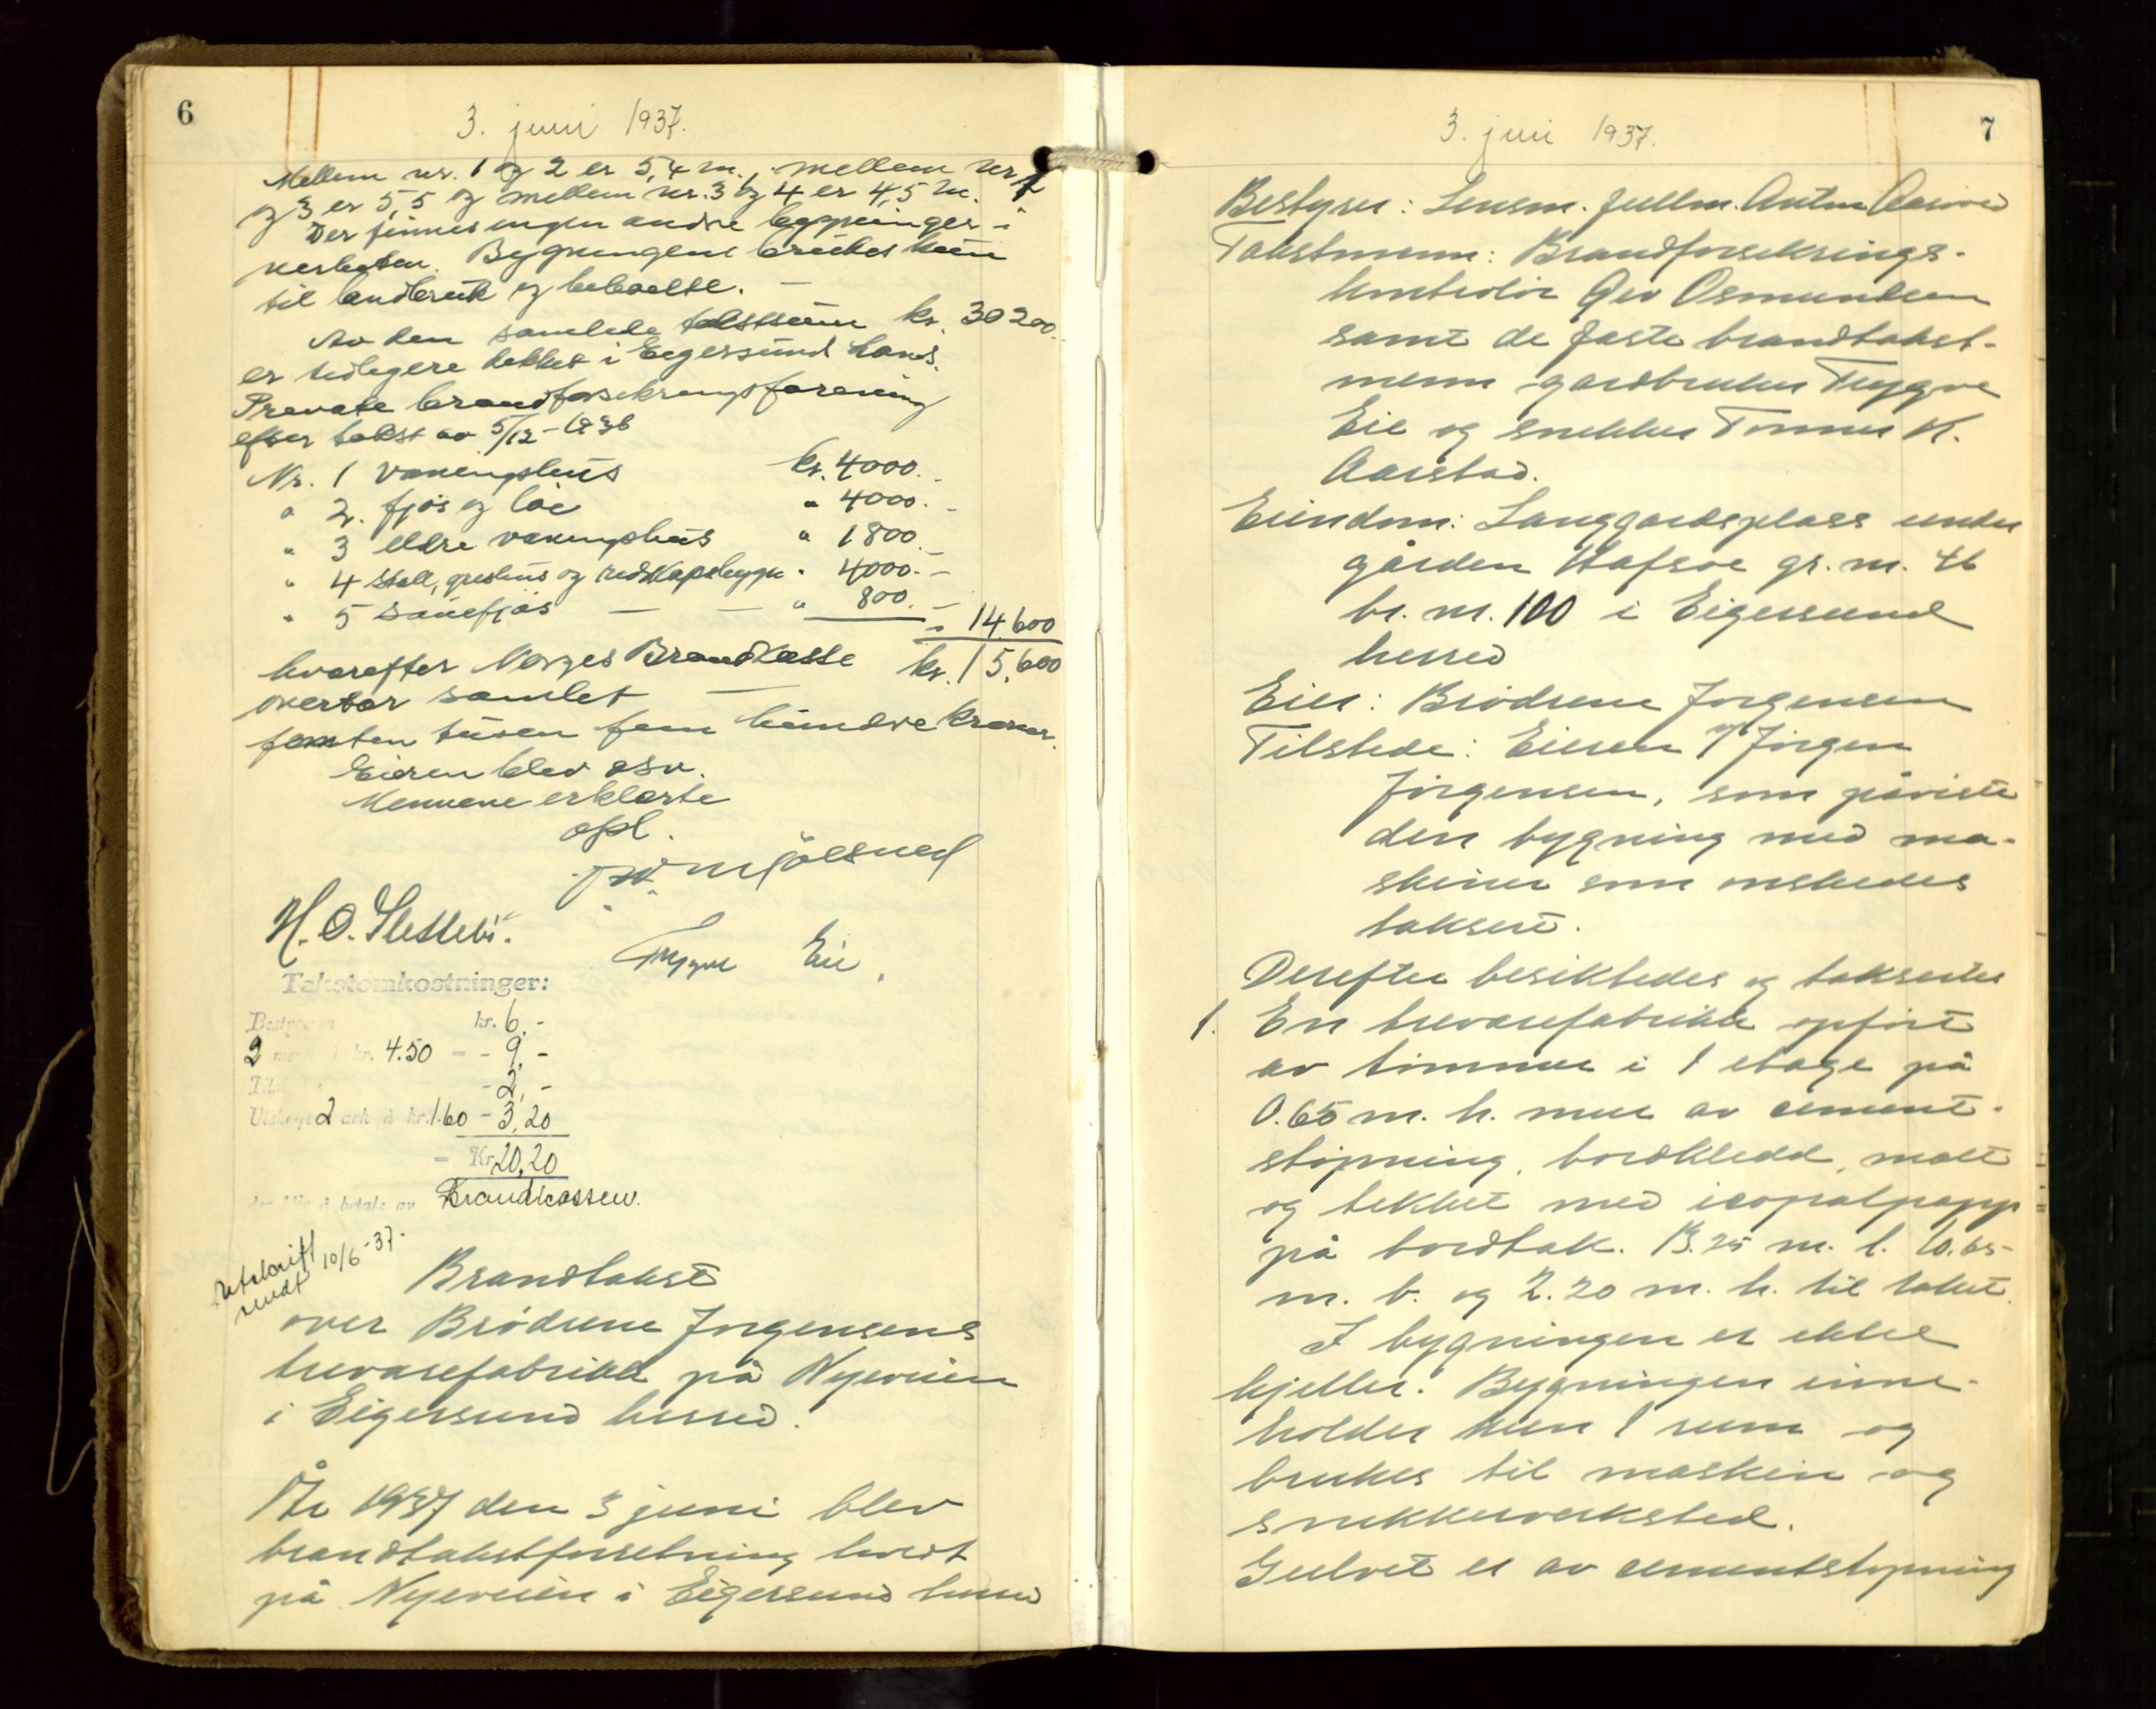 6
3. juni 1937.
Mellem nr. 1 og 2 er 5,4 m., mellem nr 1
og 3 er 5,5 og mellem nr. 3 og 4 er 4,5 m.
Der finnes ingen andre bygninger i
nerheten. Bygningene brukes kun
til landbruk og beboelse. —
Av den samlede takstsum kr. 30200.
er tidligere dekket i Eigersund Lands.
Private brandforsikringsforening
efter takst av 5/12-1936
Nr. 1 vaaningshus kr. 4000.-
" 2. fjøs og løe " 4000.-
" 3 eldre vaaningshus " 1800.-
" 4 stall, grishus og redskapsbygn " 4000.-
" 5 sauefjøs — — " 800.- - 14.600
hvorefter Norges Brandkasse kr. 15,600
overtar samlet —
femten tusen fem hundre kroner.
Eieren blev osv.
Mennene erklærte
opl.
Mjølsned
H. O. Slettebø.
Trygve Eie.
Takstomkostninger:
Bestyreren kr. 6,-
2 menn à kr. 4.50 = - 9,-
- 2,-
Utskrift 2 ark à kr. 1.60 - 3,20
= Kr 20,20
der blir å betale av Brandkassen.
Utskrift 10/6-37.
sendt
Brandtakst
over Brødrene Jørgensens
trevarefabrikk på Nyeveien
i Eigersund herred.
År 1937 den 3 juni blev
brandtakstforretning holdt
på Nyeveien i Eigersund herred
7
3. juni 1937.
Bestyrer: Lensm. fullm. Anton Aasved
Takstmenn: Brandforsikrings-
kontrolør Gev Osmundsen
samt de faste brandtakst-
menn gardbruker Trygve
Eie og snekker Tønnes K.
Aarstad.
Eiendom: Langgardsplass under
gården Hafsøe gr. nr. 46
br. nr. 100 i Eigersund
herred
Eier: Brødrene Jørgensen
Tilstede: Eieren v/ Jørgen
Jørgensen, som påviste
den bygning med ma-
skiner som ønskedes
taksert.
Derefter besiktedes og taksertes
1. En trevarefabrikk opført
av tømmer i 1 etage på
0.65 m. h. mur av cement-
støpning, bordkledd, malt
og tekket med icopalpapp
på bordtak. 13.25 m. l. 10.65
m. b. og 2.20 m. h. til taket.
I bygningen er ikke
kjeller. Bygningen inne-
holder kun 1 rum og
brukes til maskin og
snekkerverksted.
Gulvet er av cementstøpning